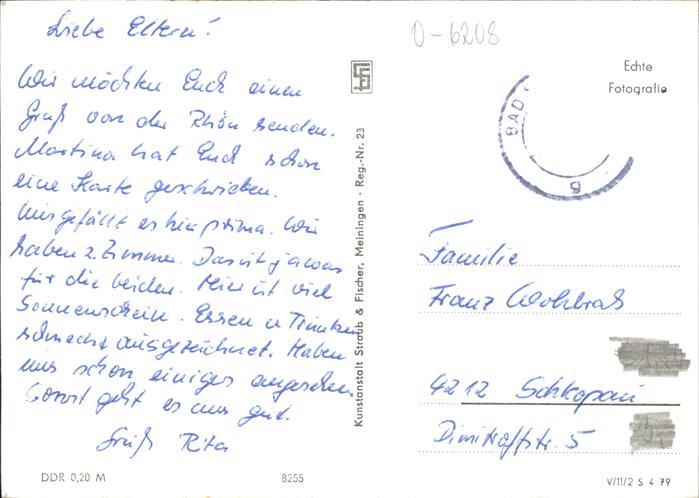 Liebe Eltern!
Wir möchten Euch einen
Gruß von der Rhön senden.
Martina hat Euch schon
eine Karte geschrieben.
Uns gefällt es hier prima. Wir
haben 2 Zimmer. Das ist ja was
für die beiden. Hier ist viel
Sonnenschein. Essen u Trinken
schmeckt ausgezeichnet. Haben
uns schon einiges angesehen.
Sonst geht es uns gut.
Gruß Rita
DDR 0,20 M
8255
Kunstanstalt Straub & Fischer, Meiningen · Reg.-Nr. 23
0-6208
Echte
Fotografie
BAD
g
Familie
Franz
4212 Schkopau
Dimitroffstr. 5
V/11/2 S 4 79